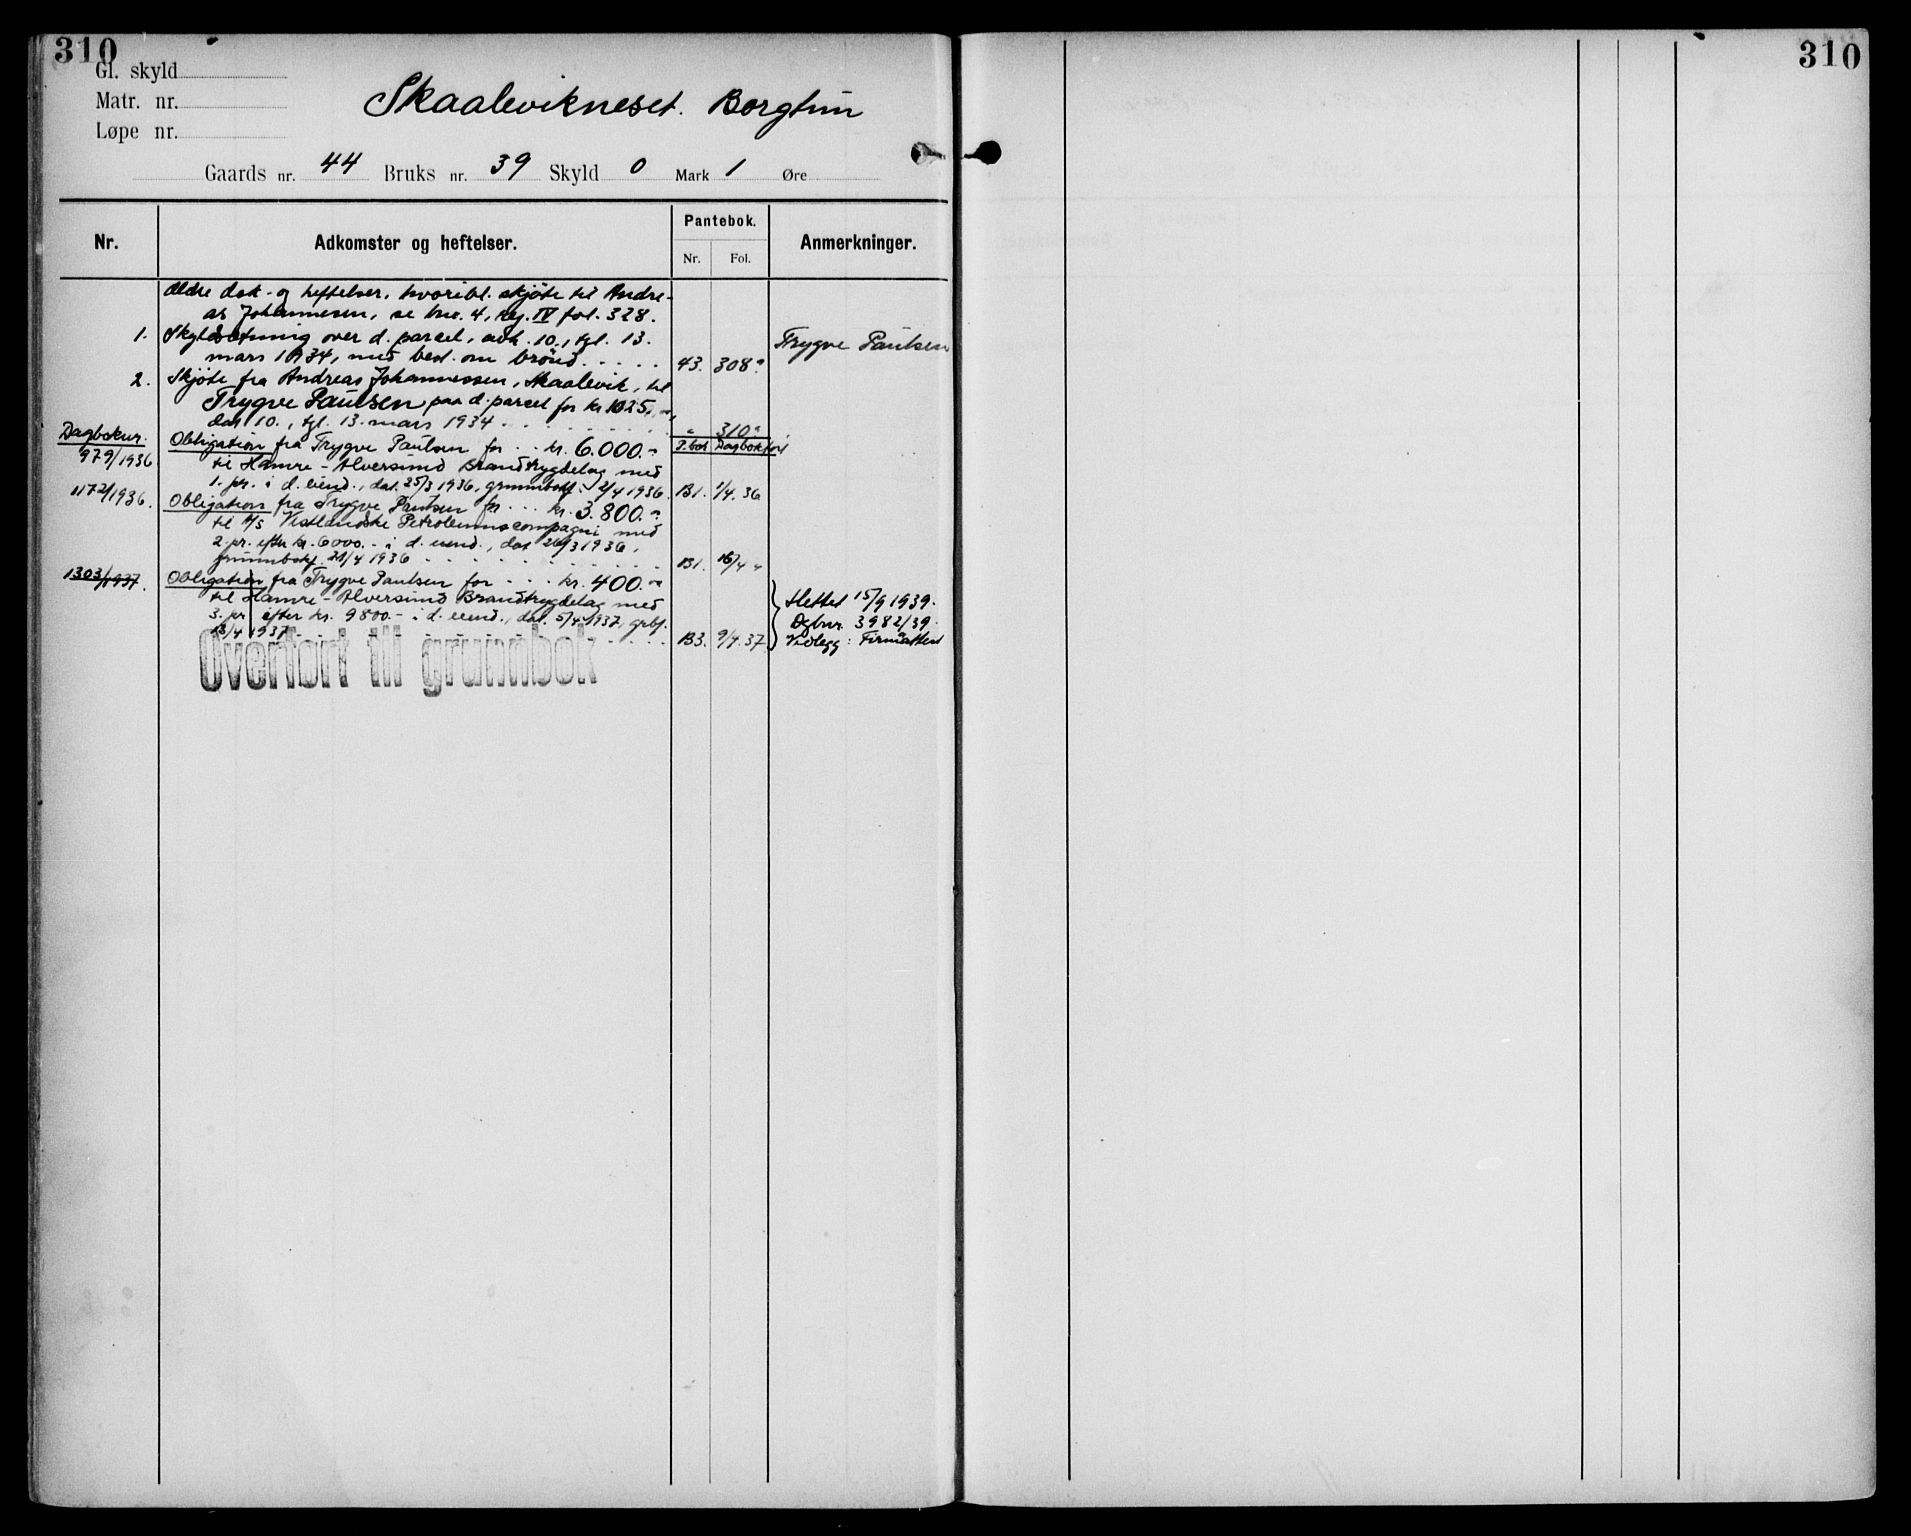 310
310
Gl. skyld
Matr. nr.
Løpe nr.
Skaalevikneset. Borgtun
Gaards nr. 44 Bruks nr. 39 Skyld 0 Mark 1 Øre
Nr.
Adkomster og heftelser.
Pantebok.
Nr.
Fol.
Anmerkninger.
Ældre dok- og heftelser, hvoribl. skjøte til Andre-
as Johannesen, se bnr. 4, reg. IV fol. 328.
1. Skyldsetning over d. parcel, avh. 10., tgl. 13.
mars 1934, med best. om brønd . . . . 43. 308 a
Trygve Paulsen
2. Skjøte fra Andreas Johannessen, Skaalevik, til
Trygve Paulsen paa d. parcel for kr. 1025,
dat 10., tgl. 13. mars 1934 . . . . . " 310 a
Dagboknr. P.bok Dagbokført
979/1936 Obligation fra Trygve Paulsen for . . kr. 6.000.-
til Hamre-Alversund Brandtrygdelag med
1. pr. i d. eiend., dat. 25/3 1936, grunnbokf. 2/4 1936. B1. 1/4. 36
1172/1936. Obligation fra Trygve Paulsen for . . . kr. 3.800.-
til A/S Vestlandske Petroleumscompagni med
2. pr. efter kr. 6000.- i d. eiend., dat 26/3 1936,
grunnbokf. 21/4 1936 . . . . . B1. 16/4 "
1303/1937. Obligation fra Trygve Paulsen for . . . kr. 400.-
til Hamre-Alversund Brandtrygdelag med
3. pr. efter kr. 9800.- i d. eiend., dat. 5/4 1937, grbf.
13/4 1937 . . . . . B3. 9/4. 37.
Slettet 15/9 1939.
Dgbnr. 3982/39.
Vedlegg: Firmaattest
Overført til grunnbok